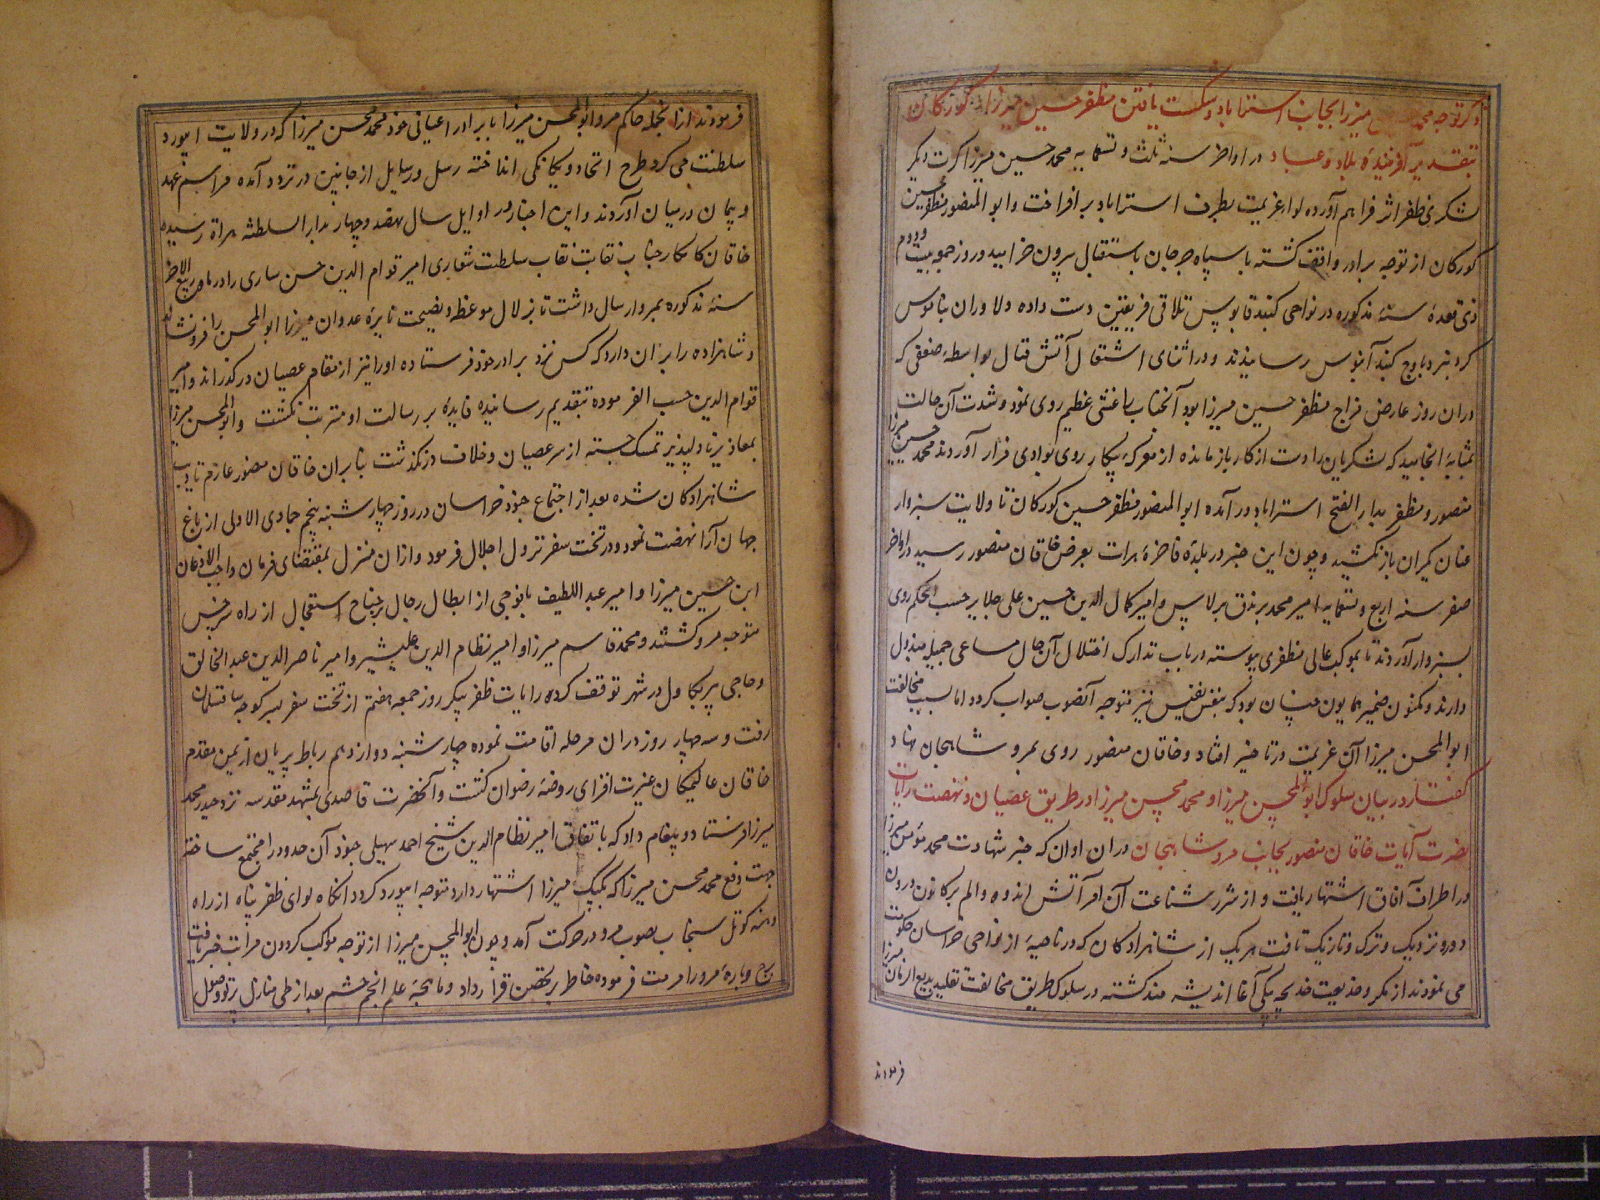 ذکر توجه محمد میرزا بجانب استراباد و شکست یافتن مظفر حسین میرزا کورکان
بتقدیر آفریننده بلاد و عباد در اواخر سنه ثلث و تسعمایه محمد حسین میرزا کرت دیکر
لشکری ظفر اثر فراهم آورده لواء عزیمت بطرف استراباد برافراخت و ابو المنصور مظفر حسین
کورکان از توجه برادر واقف کشته با سپاه جرجان باستقبال بیرون خرامید و روز جمعه بیست و دوم
ذی قعده سنه مذکوره در نواحی کنبد قابوس تلاقی فریقین دست داده دلاوران
کرد نبرد باوج کنبد آبنوس رسانیدند و در اثنای اشتعال آتش قتال بواسطه ضعفی که
دران روز عارض مزاج مظفر حسین میرزا بود آنجناب را غشی عظیم روی نمود و شدت آن حالت
بمثابه انجامید که لشکریان را دست از کار باز مانده از معرکه پیکار روی بوادی فرار آوردند محمد حسین میرزا
منصور و مظفر بدار الفتح استراباد در آمده ابو المنصور مظفر حسین کورکان تا ولایت سبزوار
عنان یکران باز نکشید و چون این خبر در بلده فاخره هرات بعرض خاقان منصور رسید در اواخر
صفر سنه اربع و تسعمایه امیر محمد برندق برلاس و امیر کمال الدین حسین علی جلایر حسب الحکم روی
بسبزوار آوردند تا بموکب عالی مظفری پیوسته در باب تدارک اختلال آن حال مساعی جمیل مبذول
دارند و مکنون ضمیر همایون چنان بود که بنفس نفیس نیز متوجه آنصوب صواب کردد اما بسبب مخالفت
ابو المحسن میرزا آن عزیمت در تاخیر افتاد و خاقان منصور روی بمرو شاهجان نهاد
کفتار در بیان سلوک ابو المحسن میرزا و محمد محسن میرزا در طریق عصیان و نهضت رایات
نصرت آیات خاقان منصور بجانب مرو شاهجان دران اوان که خبر شهادت محمد مؤمن میرزا
در اطراف آفاق اشتهار یافت و از شرر شناعت آن امر آتش اندوه و الم بر کانون درون
دور و نزدیک و ترک و تازیک تافت هر یک از شاهزادکان که در ناحیه از نواحی خراسان حکومت
می نمودند از مکر و خدیعت خدیجه بیکی آغا اندیشه مند کشته در سلوک طریق مخالفت تقلید بدیع الزمان میرزا
فرمودند
فرمودند از انجمله حاکم مرو ابو المحسن میرزا با برادر اعیانی خود محمد محسن میرزا که در ولایت ابیورد
سلطنت می کرد طرح اتحاد و یکانکی انداخته رسل و رسایل از جانبین در تردد آمده مراسم عهد
و پیمان در میان آوردند و این اخبار در اوایل سال نهصد و چهار بدار السلطنه هراة رسیده
خاقان کامکار جناب نقابت نقاب سلطنت شعاری امیر قوام الدین حسن ساری را در ماه ربیع الاخر
سنه مذکوره بمرو ارسال داشت تا بزلال موعظه و نصیحت نایره عدوان میرزا ابو المحسن را فرو نشاند
و شاهزاده را بران دارد که کس نزد برادر خود فرستاده او را نیز از مقام عصیان در کذراند و امیر
قوام الدین حسب الفرموده بتقدیم رسانیده فایده بر رسالت او مترتب نکشت و ابو المحسن میرزا
بمعاذیر نادلپذیر تمسک جسته از سر عصیان و خلاف در نکذشت بنابران خاقان منصور عازم تادیب
شاهزادکان شده بعد از اجتماع جنود خراسان در روز چهار شنبه پنجم جمادی الاولی از باغ
جهان آرا نهضت نمود و در تخت سفر نزول اجلال فرمود و ازان منزل بمقتضای فرمان واجب الاذعان
ابن حسین میرزا و امیر عبد اللطیف با فوجی از ابطال رجال بر جناح استعجال از راه سرخس
متوجه مرو کشتند و محمد قاسم میرزا و امیر نظام الدین علیشیر و امیر ناصر الدین عبد الخالق
و حاجی پیر بکاول در شهر توقف کرده رایات ظفر پیکر روز جمعه هفتم از تخت سفر
رفت و سه چهار روز دران مرحله اقامت نموده چهار شنبه دوازدهم رباط پریان از یمن مقدم
خاقان عالیمکان غیرت افزای روضه رضوان کشت و آنحضرت قاصدی بمشهد مقدسه نزد حیدر محمد
میرزا فرستاد و پیغام داد که باتفاق امیر نظام الدین شیخ احمد سهیلی جنود آن حدود را مجتمع ساخته
جهت دفع محمد محسن میرزا که بکپک میرزا اشتهار دارد متوجه ابیورد کردد انکاه لوای ظفر پناه از راه
دهنه کوتل سنجاب بصوب مرو در حرکت آمد و چون ابو المحسن میرزا از توجه موکب کردون مراتب خبر یافت
برج و باره مرو را مرمت فرموده خاطر بر تحصن قرار داد و ماهچه علم انجم حشم بعد از طی منازل